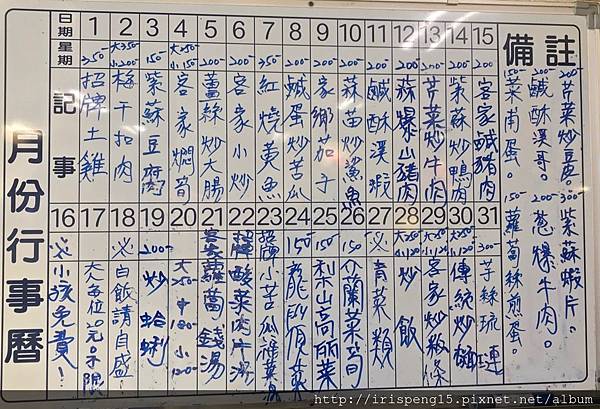 月份行事曆
日期 1 2 3 4 5 6 7 8 9 10 11 12 13 14 15 備註
星期
記事
350- 招牌土雞
大350- 小200- 梅干扣肉
150- 紫蘇豆腐
大250- 小150- 客家燜筍
200- 薑絲炒大腸
200- 客家小炒
350- 紅燒黃魚
200- 鹹蛋炒苦瓜
200- 客鄉茄子
200- 蒜苗炒鯊魚
200- 鹹酥溪蝦
200- 蒜爆山豬肉
200- 芹菜炒牛肉
200- 紫蘇炒鴨肉
200- 客家鹹豬肉
16 17 18 19 20 21 22 23 24 25 26 27 28 29 30 31
小孩免費!
大人每位20元。不限
白飯請自盛
200- 炒蛤蜊
大250 中180 小120
客家蘿蔔錢湯
酸菜肉片湯
招牌小苦瓜
150- 龍鬚菜
150- 梨山高麗菜
150- 介蘭菜
青菜類
大250- 小120- 炒飯
大250- 小120- 客家炒粄條
大250- 小120- 傳統炒麵
300- 芋絲琉璉
200- 芹菜炒豆乾。
300- 紫蘇蝦片。
200- 鹹酥溪哥。
200- 蔥爆牛肉。
150- 菜甫蛋。
150- 蘿蔔絲煎蛋。
http://irispeng15.pixnet.net/album